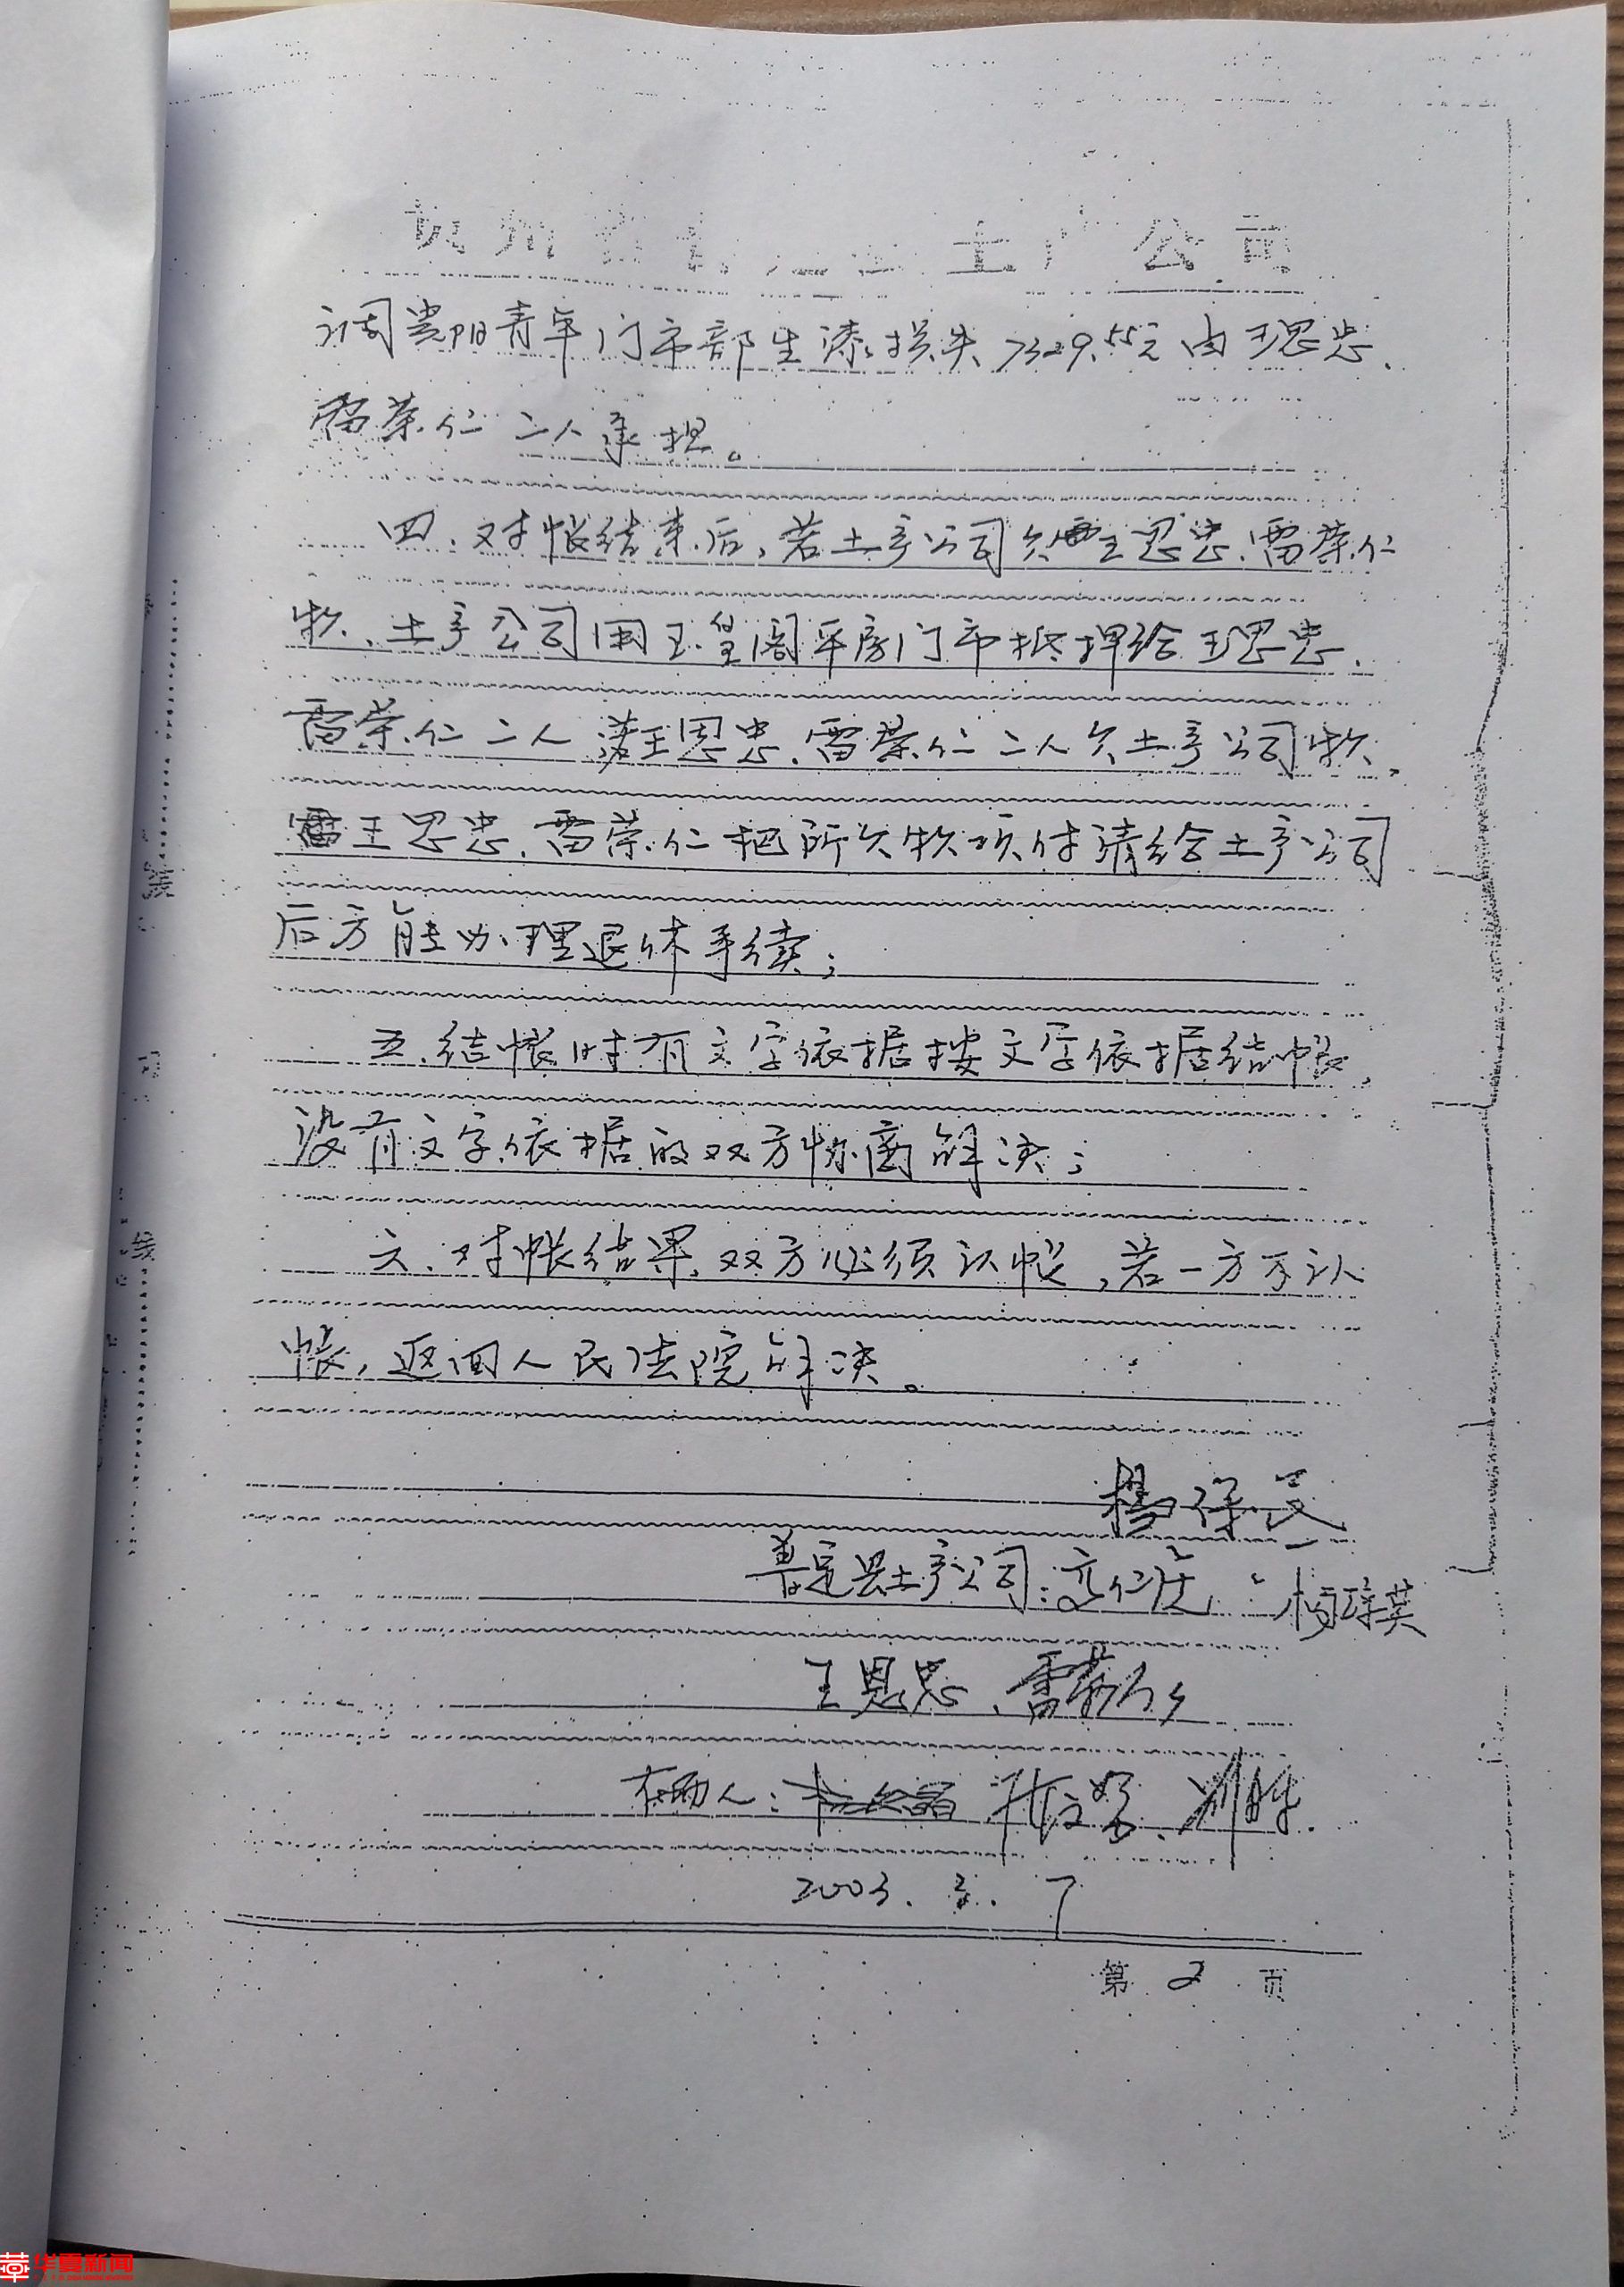 贵州省普定县土产公司
调贵阳青年门市部生漆损失7329.55元由王思忠、
雷荣仁二人承担。
四、对帐结束后,若土产公司欠王思忠、雷荣仁
款、土产公司用玉皇阁平房门市抵押给王思忠、
雷荣仁二人 若王思忠、雷荣仁二人欠土产公司款、
王思忠、雷荣仁把所欠款项付清给土产公司
后方能办理退休手续;
五、结帐时有文字依据按文字依据结帐,
没有文字依据的双方协商解决;
六、对帐结果,双方必须认帐,若一方不认
帐,返回人民法院解决。
普定县土产公司:
王思忠、雷荣仁
在场人:
2003. 3. 7
第 2 页
装
订
线
华夏新闻